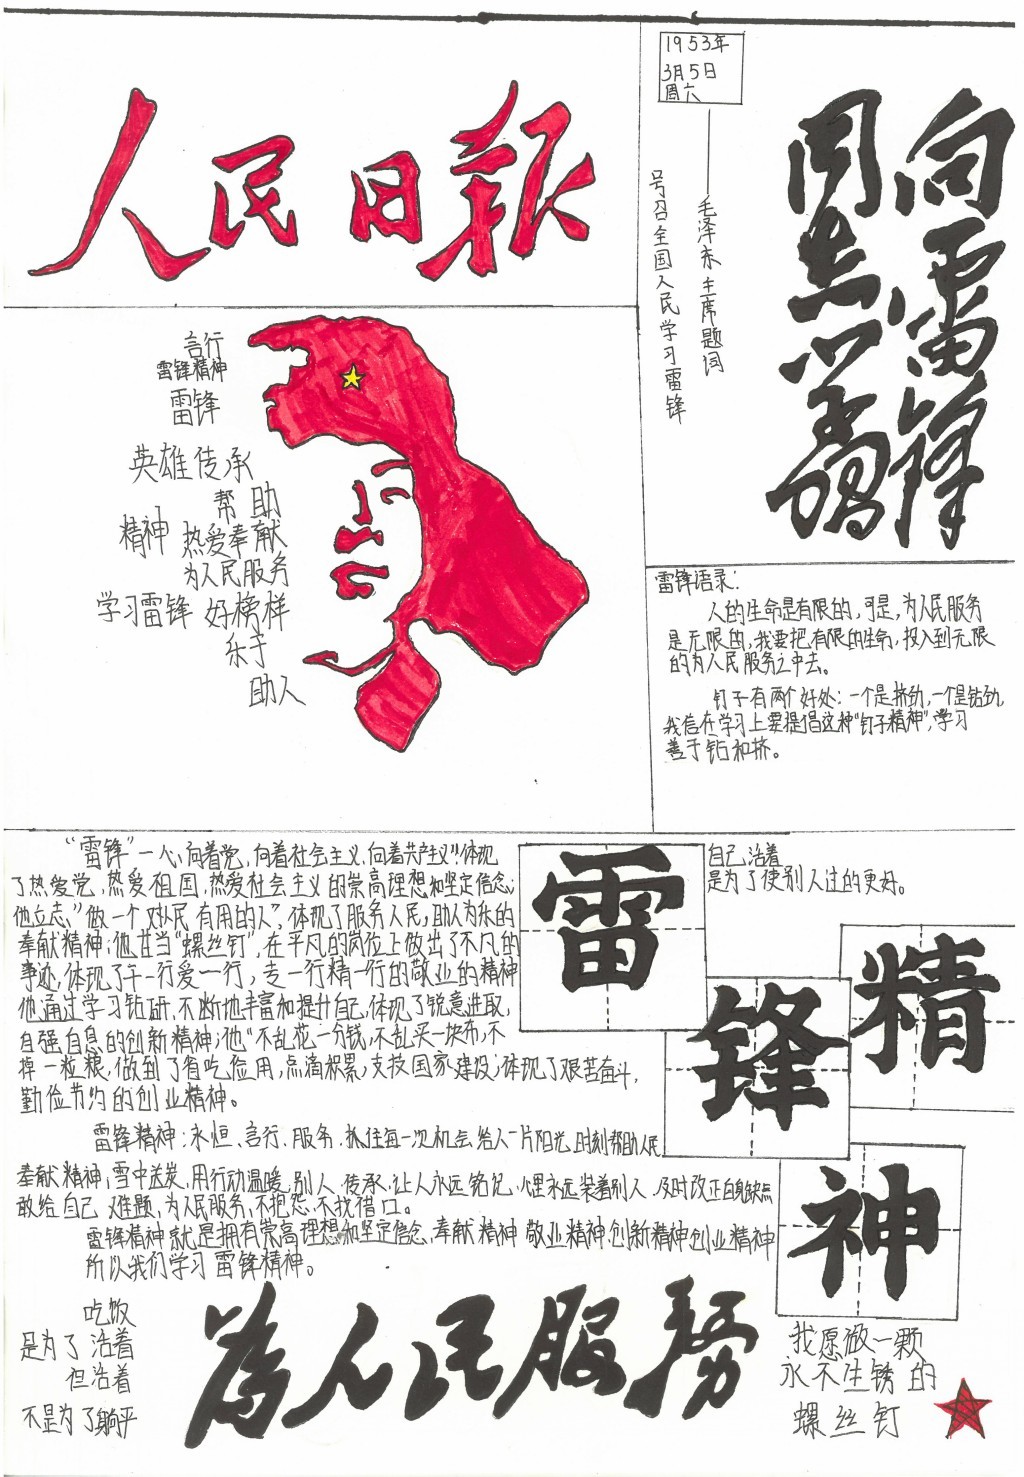 人民日报
1953年
3月5日
周六
向雷锋
同志学习
毛泽东主席题词
号召全国人民学习雷锋
言行
雷锋精神
雷锋
英雄传承
帮助
精神 热爱奉献
为人民服务
学习雷锋 好榜样
乐于
助人
雷锋语录：
人的生命是有限的，可是，为人民服务
是无限的，我要把有限的生命，投入到无限
的为人民服务之中去。
钉子有两个好处：一个是挤劲，一个是钻劲，
我信在学习上要提倡这种“钉子精神”，学习
善于钻和挤。
“雷锋”一心，向着党，向着社会主义，向着共产主义”体现
了热爱党，热爱祖国，热爱社会主义的崇高理想和坚定信念；
他立志，“做一个对人民有用的人”，体现了服务人民，助人为乐的
奉献精神；他甘当“螺丝钉”，在平凡的岗位上做出了不凡的
事迹，体现了干一行爱一行，专一行精一行的敬业的精神
他通过学习钻研，不断地丰富和提升自己，体现了锐意进取，
自强自息的创新精神；他“不乱花一分钱，不乱买一块布，不
掉一粒粮，做到了省吃俭用，点滴积累，支技国家建设；体现了艰苦奋斗，
勤俭节约的创业精神。
雷锋精神：永恒、言行、服务、抓住每一次机会，给人一片阳光，时刻帮助人民
奉献精神，雪中送炭，用行动温暖别人，传承，让人永远铭记，心里永远装着别人，及时改正自身缺点
敢给自己难题，为人民服务，不抱怨，不找借口。
雷锋精神就是拥有崇高理想和坚定信念，奉献精神 敬业精神 创新精神 创业精神
所以我们学习雷锋精神。
自己活着
是为了使别人过的更好。
雷
锋
精
神
吃饭
是为了活着
但活着
不是为了躺平
为人民服务
我愿做一颗
永不生锈的
螺丝钉